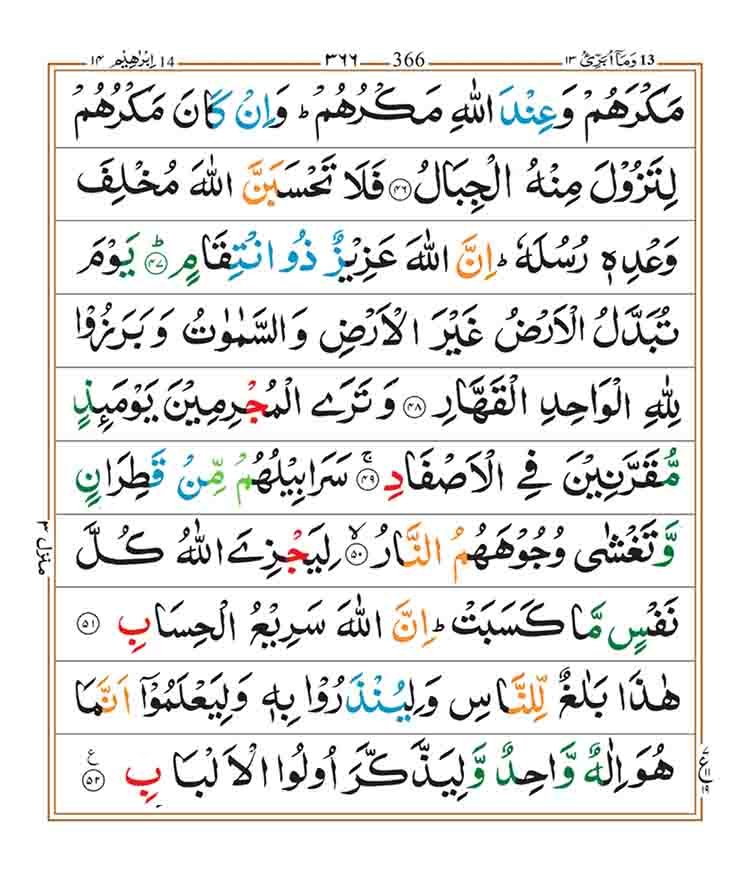 ابرٰهيم 14 ١٤ ٣٦٦ 366 وما ابرئ 13 ١٣
مَكْرَهُمْ وَعِنْدَ اللّٰهِ مَكْرُهُمْ ؕ وَاِنْ كَانَ مَكْرُهُمْ
لِتَزُوْلَ مِنْهُ الْجِبَالُ ۝٤٦ فَلَا تَحْسَبَنَّ اللّٰهَ مُخْلِفَ
وَعْدِهٖ رُسُلَهٗ ؕ اِنَّ اللّٰهَ عَزِيْزٌ ذُو انْتِقَامٍ ؕ ۝٤٧ يَوْمَ
تُبَدَّلُ الْاَرْضُ غَيْرَ الْاَرْضِ وَالسَّمٰوٰتُ وَبَرَزُوْا
لِلّٰهِ الْوَاحِدِ الْقَهَّارِ ۝٤٨ وَتَرَى الْمُجْرِمِيْنَ يَوْمَئِذٍ
مُّقَرَّنِيْنَ فِي الْاَصْفَادِ ۚ ۝٤٩ سَرَابِيْلُهُمْ مِّنْ قَطِرَانٍ
وَّتَغْشٰى وُجُوْهَهُمُ النَّارُ ۙ ۝٥٠ لِيَجْزِيَ اللّٰهُ كُلَّ
نَفْسٍ مَّا كَسَبَتْ ؕ اِنَّ اللّٰهَ سَرِيْعُ الْحِسَابِ ۝٥١
هٰذَا بَلٰغٌ لِّلنَّاسِ وَلِيُنْذَرُوْا بِهٖ وَلِيَعْلَمُوْۤا اَنَّمَا
هُوَ اِلٰهٌ وَّاحِدٌ وَّلِيَذَّكَّرَ اُولُوا الْاَلْبَابِ ۝٥٢ ع
منزل ٣
٧
ع ١١
١٩